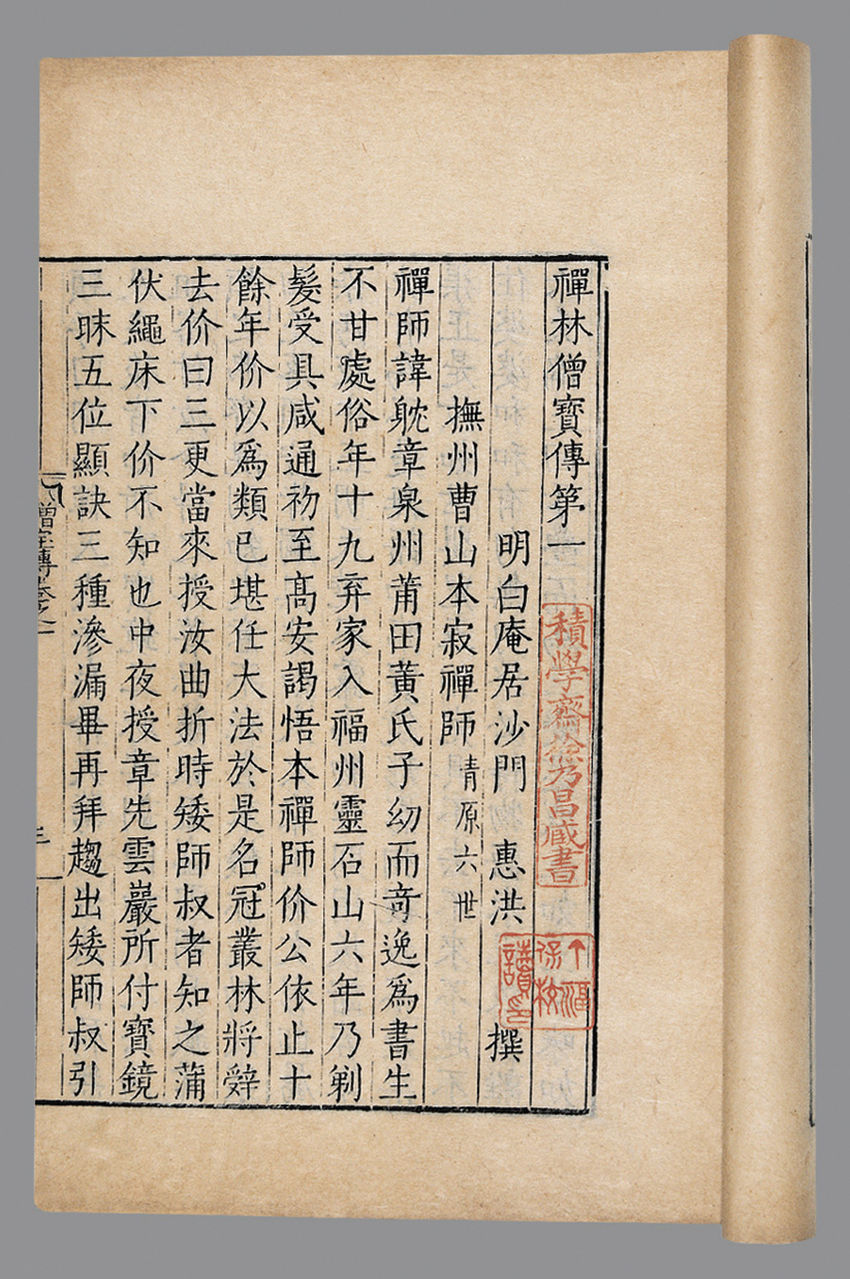 禪林僧寶傳第一
明白庵居沙門 惠洪 撰
撫州曹山本寂禪師 青原六世
禪師諱躭章泉州莆田黃氏子幼而奇逸爲書生
不甘處俗年十九弃家入福州靈石山六年乃剃
髮受具咸通初至高安謁悟本禪師价公依止十
餘年价以爲類已堪任大法於是名冠叢林將辤
去价曰三更當來授汝曲折時矮師叔者知之蒲
伏繩床下价不知也中夜授章先雲巖所付寶鏡
三昧五位顯訣三種滲漏畢再拜趨出矮師叔引
僧宝傳卷之一
積學齋徐乃昌藏書